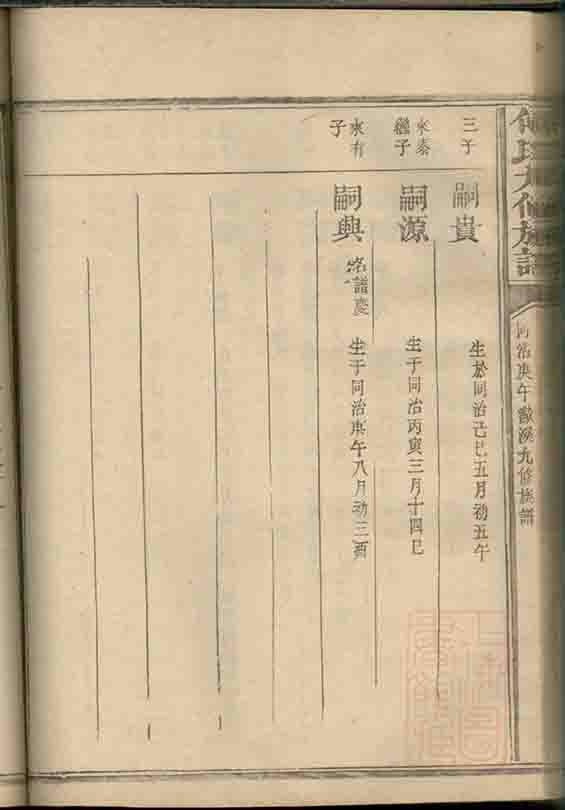 氏九修族譜
同治庚午 溪九修族譜
三子
嗣貴
生於同治己巳五月初五午
永泰
繼子
嗣源
生于同治丙寅三月十四巳
永有
子
嗣興
名譜慶
生于同治庚午八月初三酉
上海圖
書館藏